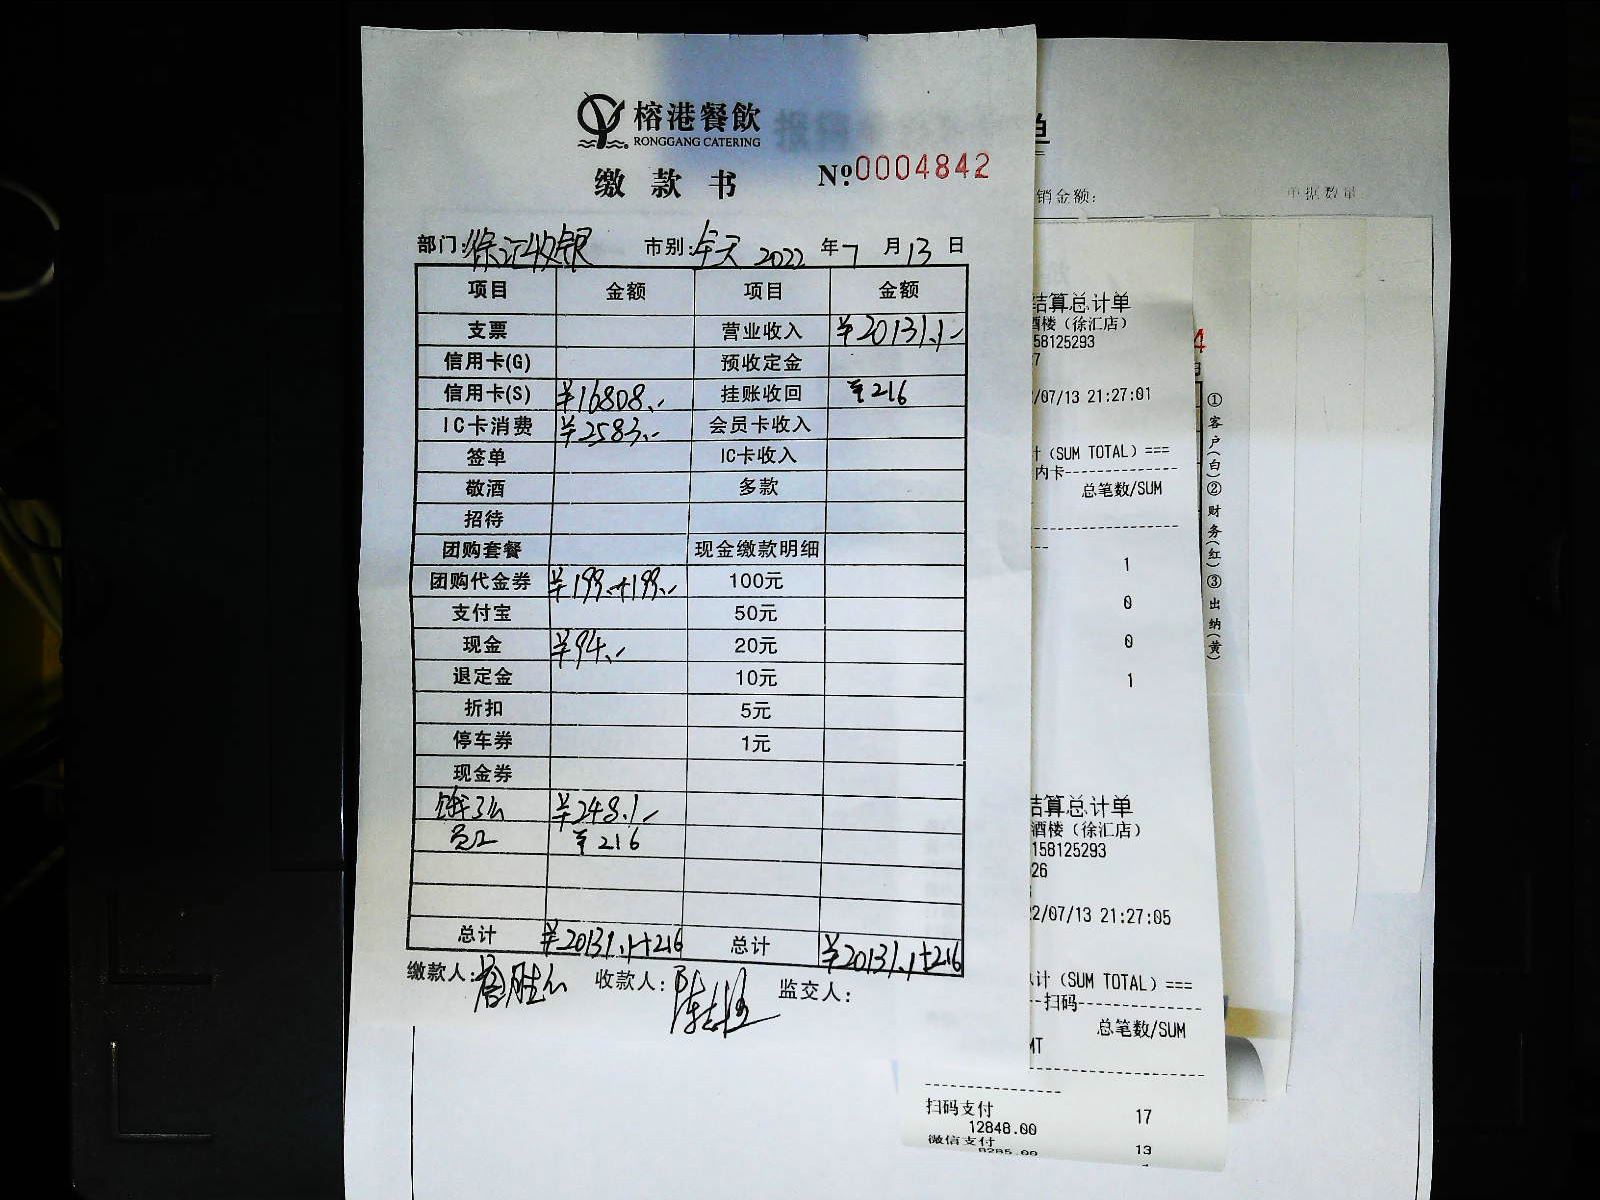 榕港餐飲
RONGGANG CATERING
缴款书 Nº:0004842
部门:徐汇收银 市别:全天 2022年7月13日
项目 金额 项目 金额
支票 营业收入 ¥20131.1-
信用卡(G) 预收定金
信用卡(S) ¥16808.- 挂账收回 ¥216
IC卡消费 ¥2583.- 会员卡收入
签单 IC卡收入
敬酒 多款
招待
团购套餐 现金缴款明细
团购代金券 ¥199.-+199.- 100元
支付宝 50元
现金 ¥94.- 20元
退定金 10元
折扣 5元
停车券 1元
现金券
饿了么 ¥248.1-
员工 ¥216
总计 ¥20131.1+216 总计 ¥20131.1+216
缴款人: 收款人: 监交人:
单
销金额: 单据数量
结算总计单
酒楼（徐汇店）
58125293
7
/07/13 21:27:01
计（SUM TOTAL）===
内卡
总笔数/SUM
1
0
0
1
4
①客户(白)②财务(红)③出纳(黄)
结算总计单
酒楼（徐汇店）
158125293
26
22/07/13 21:27:05
计（SUM TOTAL）===
扫码
总笔数/SUM
MT
扫码支付 17
12848.00
微信支付 13